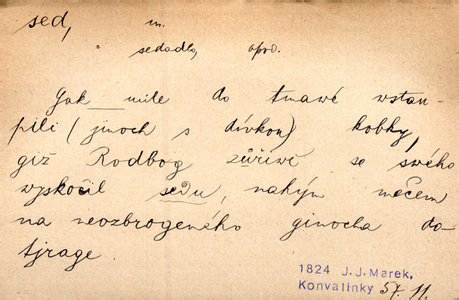 sed, m.
" sedadlo, opr.
Jak mile do tmawé wstau-
pili (jinoch s dívkou) kobky,
giž Rodbog zůřiwě se swého
wyskočil sedu, nahým mečem
na neozbrogeného ginocha do-
tjrage
1824 J. J. Marek,
Konvalinky 57. 11.